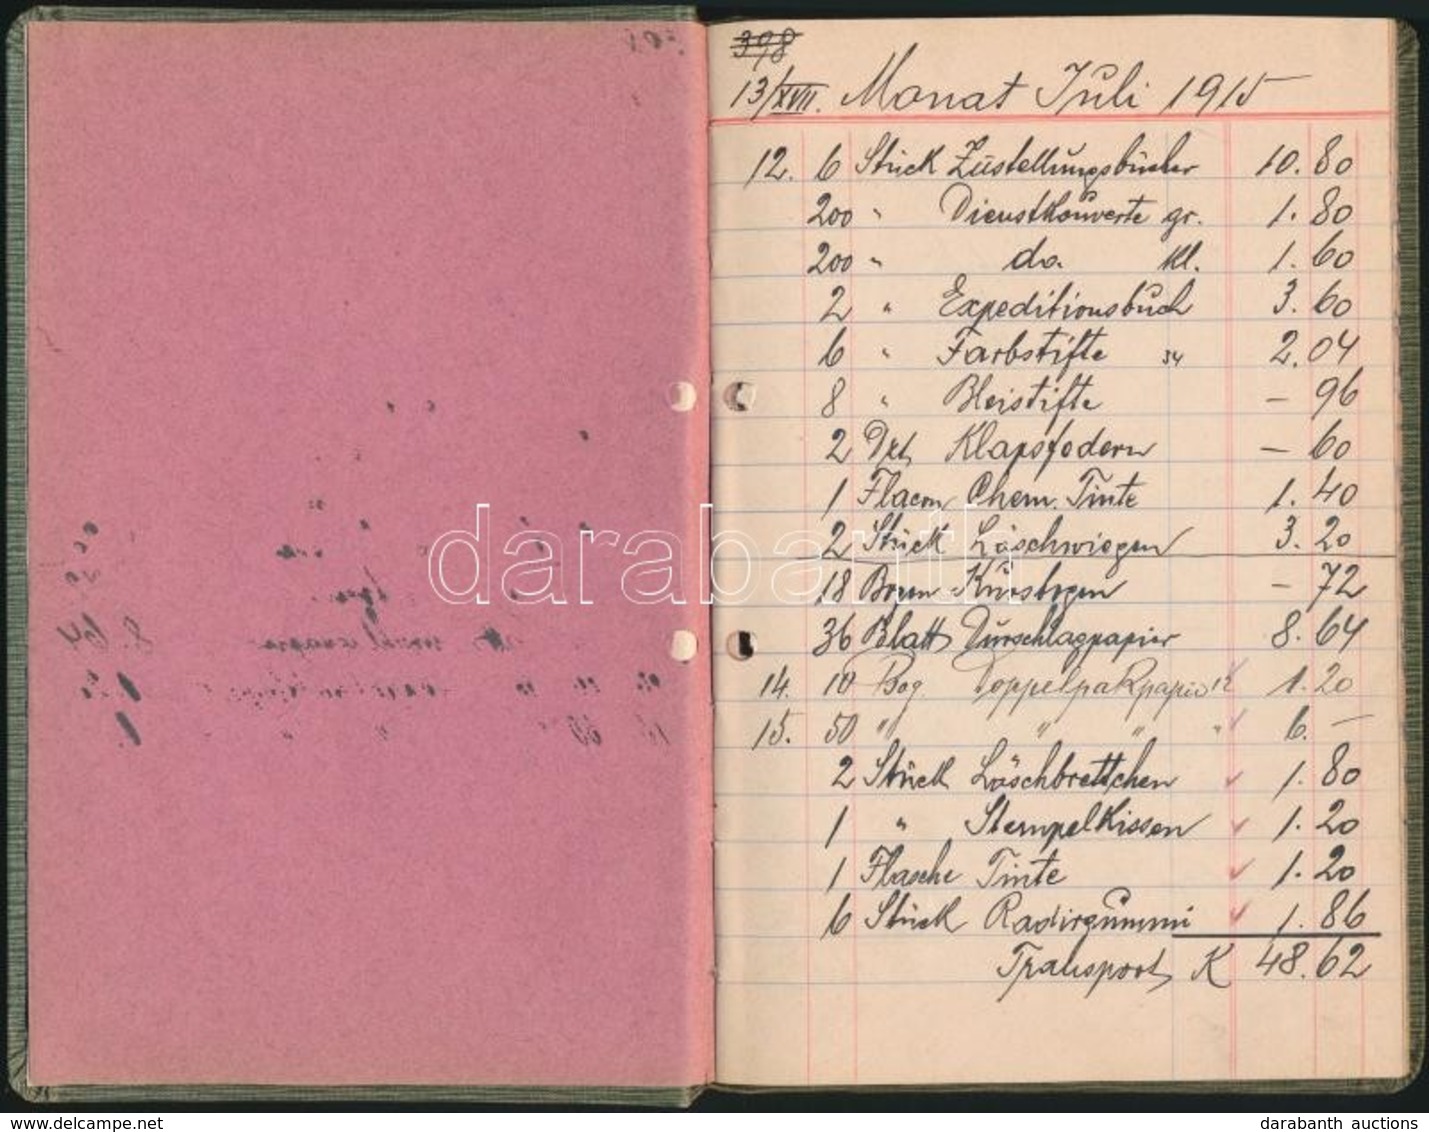 398
13/XVII. Monat Juli 1915
12. 6 Stück Zustellungsbücher 10.80
200 " Dienstkouverte gr. 1.80
200 " do. kl. 1.60
2 " Expeditionsbuch 3.60
6 " Farbstifte 34 2.04
8 " Bleistifte – 96
2 Dzt. Klapsfedern – 60
1 Flacon Chem. Tinte 1.40
2 Stück Löschwiegen 3.20
18 Bogen – 72
36 Blatt Durschlagpapier 8.64
14. 10 Bog. Doppelpakpapier 12 1.20
15. 50 " " " " 6. –
2 Stück Löschbrettchen 1.80
1 " Stempelkissen 1.20
1 Flasche Tinte 1.20
6 Stück Radirgummi 1.86
Transport K 48.62
darabanth
www.delcampe.net
darabanth auctions